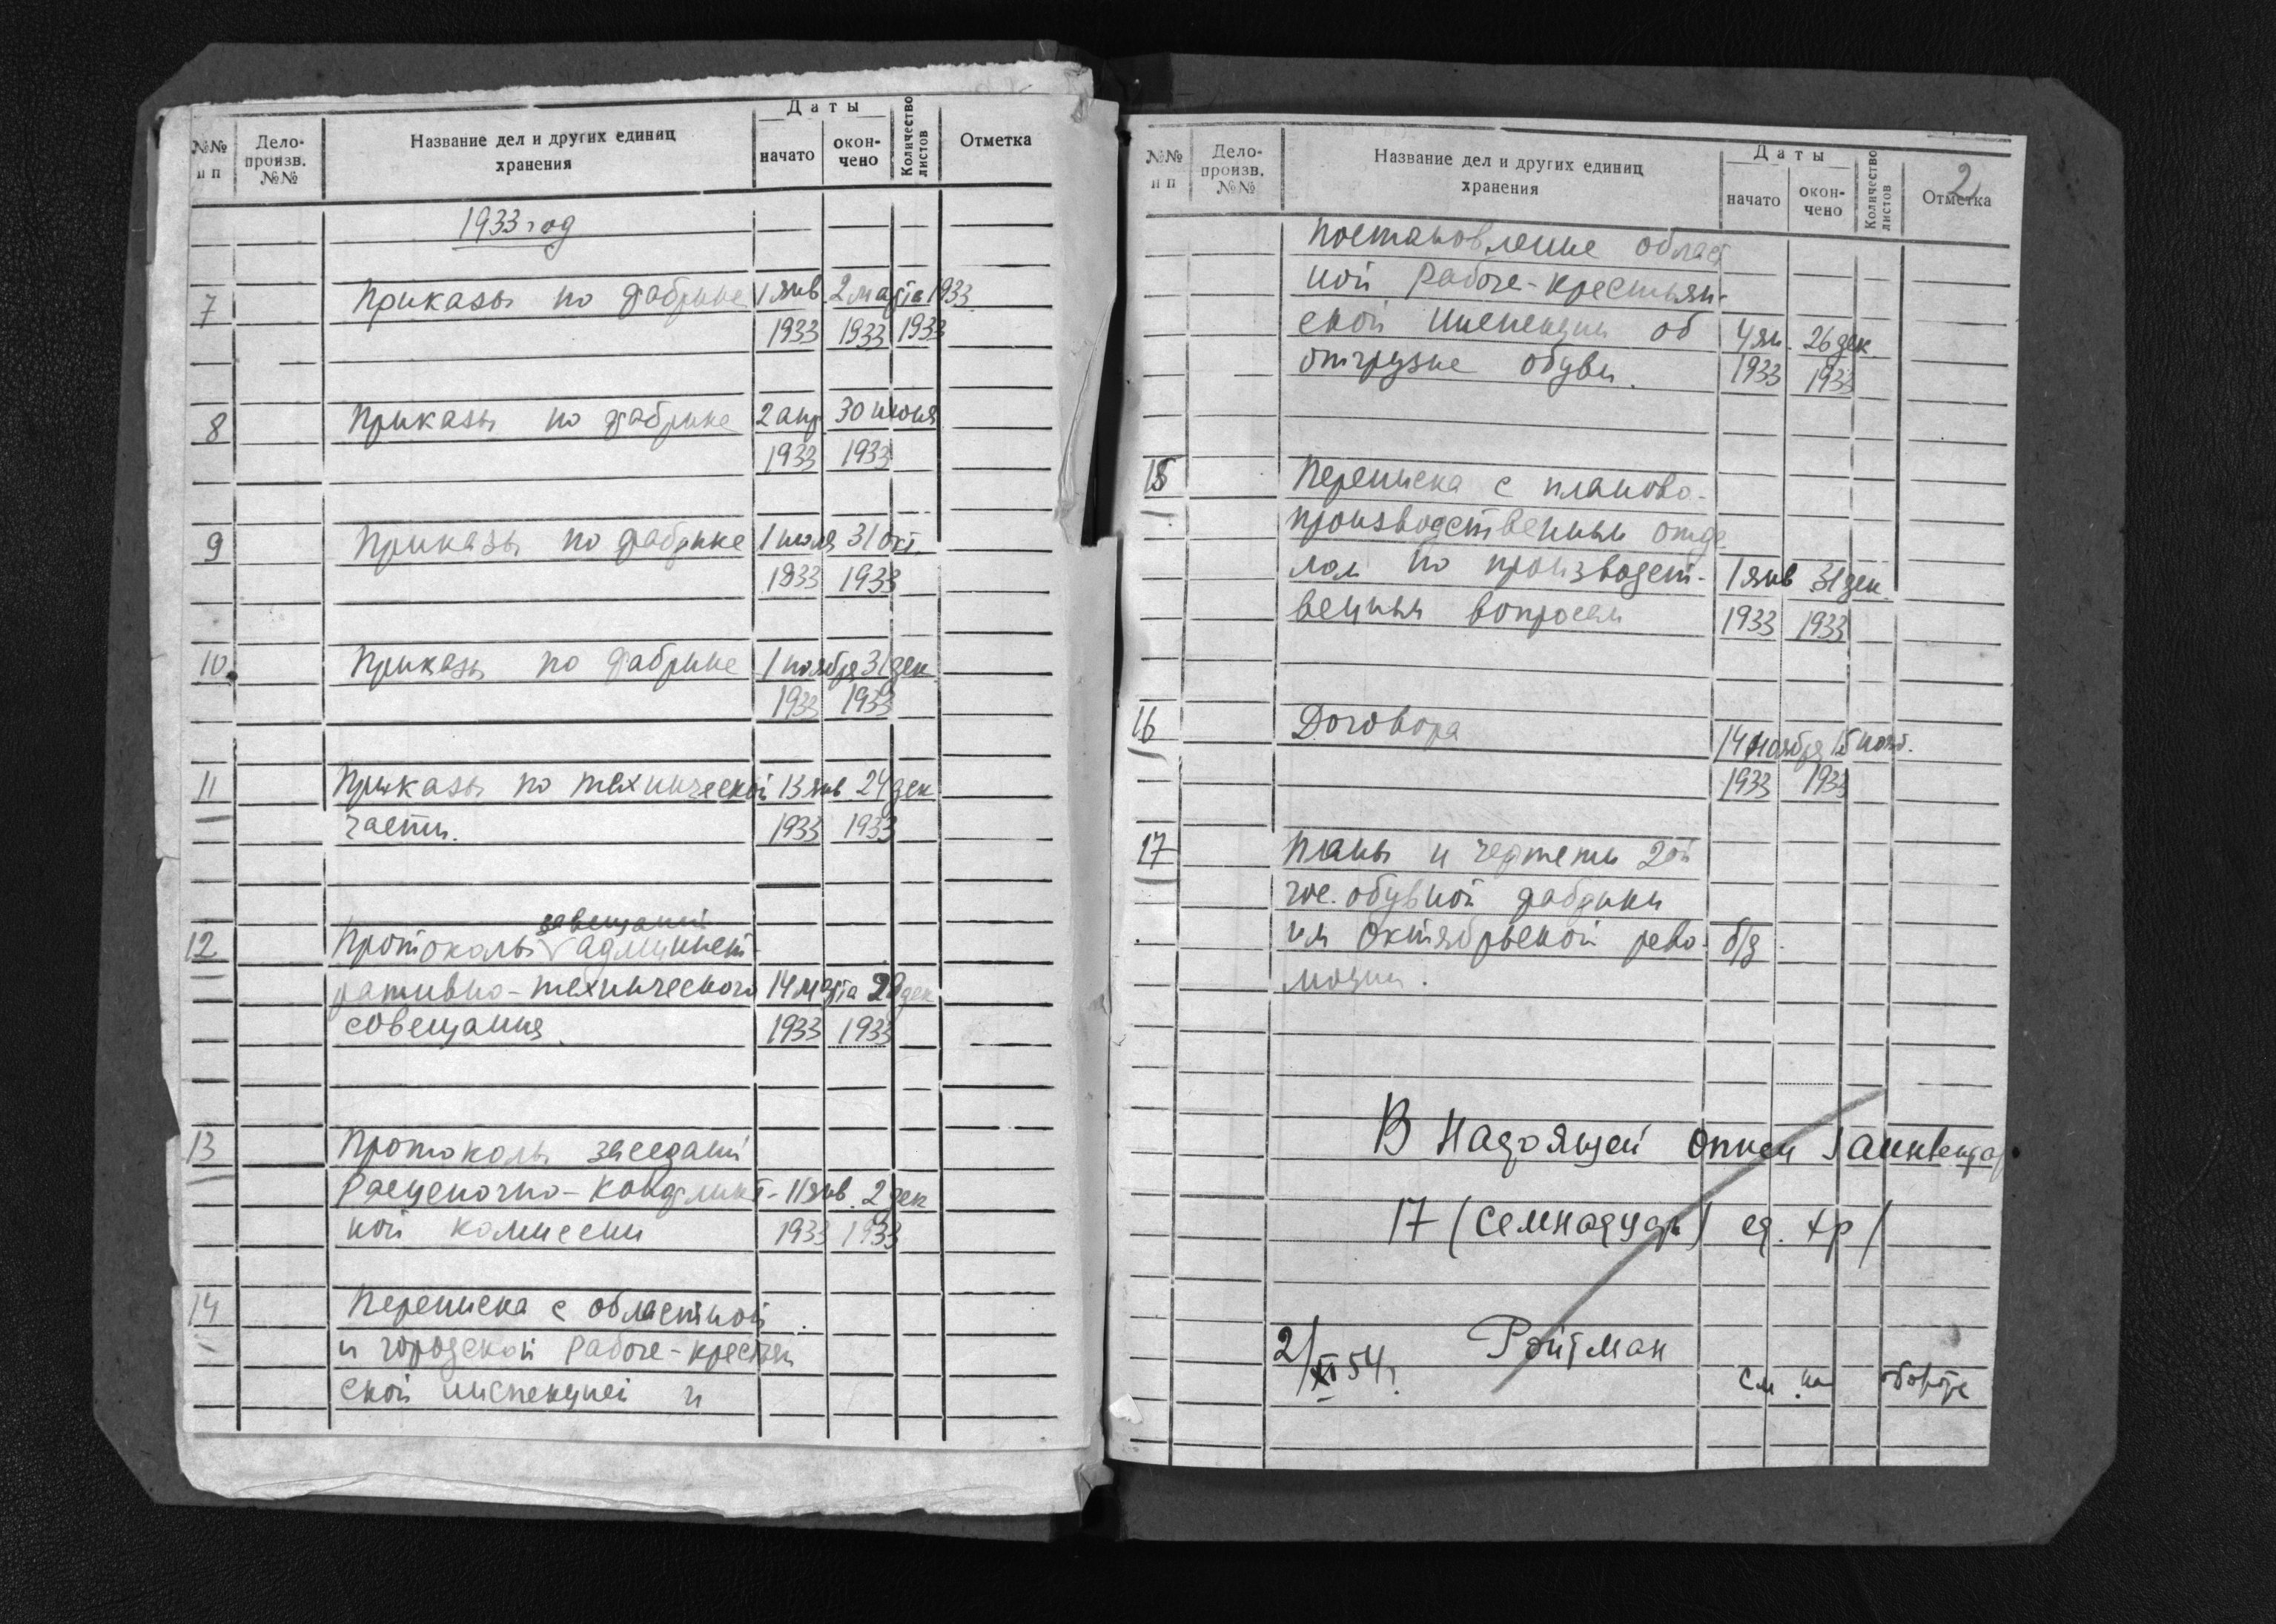 №№ п п
Дело- произв. №№
Название дел и других единиц хранения
Даты
начато
окон- чено
Количество листов
Отметка
1933 год
7 Приказы по фабрике 1 янв 2 марта 1933
1933 1933 1933
8 Приказы по фабрике 2 апр 30 июня
1933 1933
9 Приказы по фабрике 1 июля 31 окт.
1933 1933
10 Приказы по фабрике 1 ноября 31 дек
1933 1933
11 Приказы по технической 13 янв 24 дек
части. 1933 1933
совещаний
12 Протоколы админист-
ративно-технического 14 марта 29 дек
совещания 1933 1933
13 Протоколы заседаний
Расценочно-конфликт- 11 янв. 2 дек
ной комиссии 1933 1933
14 Переписка с областной
и городской Рабоче-крестьян
ской инспекцией и
№№ п п
Дело- произв. №№
Название дел и других единиц хранения
Даты
начато
окон- чено
Количество листов
Отметка
2
постановление област
ной Рабоче-крестьян-
ской инспекции об 4 ян. 26 дек
отгрузке обуви. 1933 1933
15 Переписка с планово-
производственным отде
лом по производст- 1 янв 31 дек.
венным вопросам 1933 1933
16 Договора 14 ноября 15 нояб.
1933 1933
17 Планы и чертежи 2ой
гос. обувной фабрики
им Октябрьской рево- б/д
люции.
В
описи
17 (семнадцать) ед. хр/
2/XI 54г. Ройтман
см. на обороте